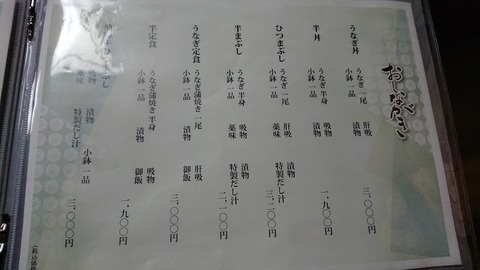 おしながき
うなぎ丼
うなぎ一尾 肝吸
小鉢一品 漬物
三、〇〇〇円
半丼
うなぎ半身 吸物
小鉢一品 漬物
一、九〇〇円
ひつまぶし
うなぎ一尾 肝吸 漬物
小鉢一品 薬味 特製だし汁
三、二〇〇円
半まぶし
うなぎ半身 吸物 漬物
小鉢一品 薬味 特製だし汁
二、一〇〇円
うなぎ定食
うなぎ蒲焼き一尾 肝吸
小鉢一品 漬物 御飯
三、〇〇〇円
半定食
うなぎ蒲焼き半身 吸物
小鉢一品 漬物 御飯
一、九〇〇円
まぶし
吸物 漬物 小鉢一品
薬味 特製だし汁
三、〇〇〇円
(税込価格